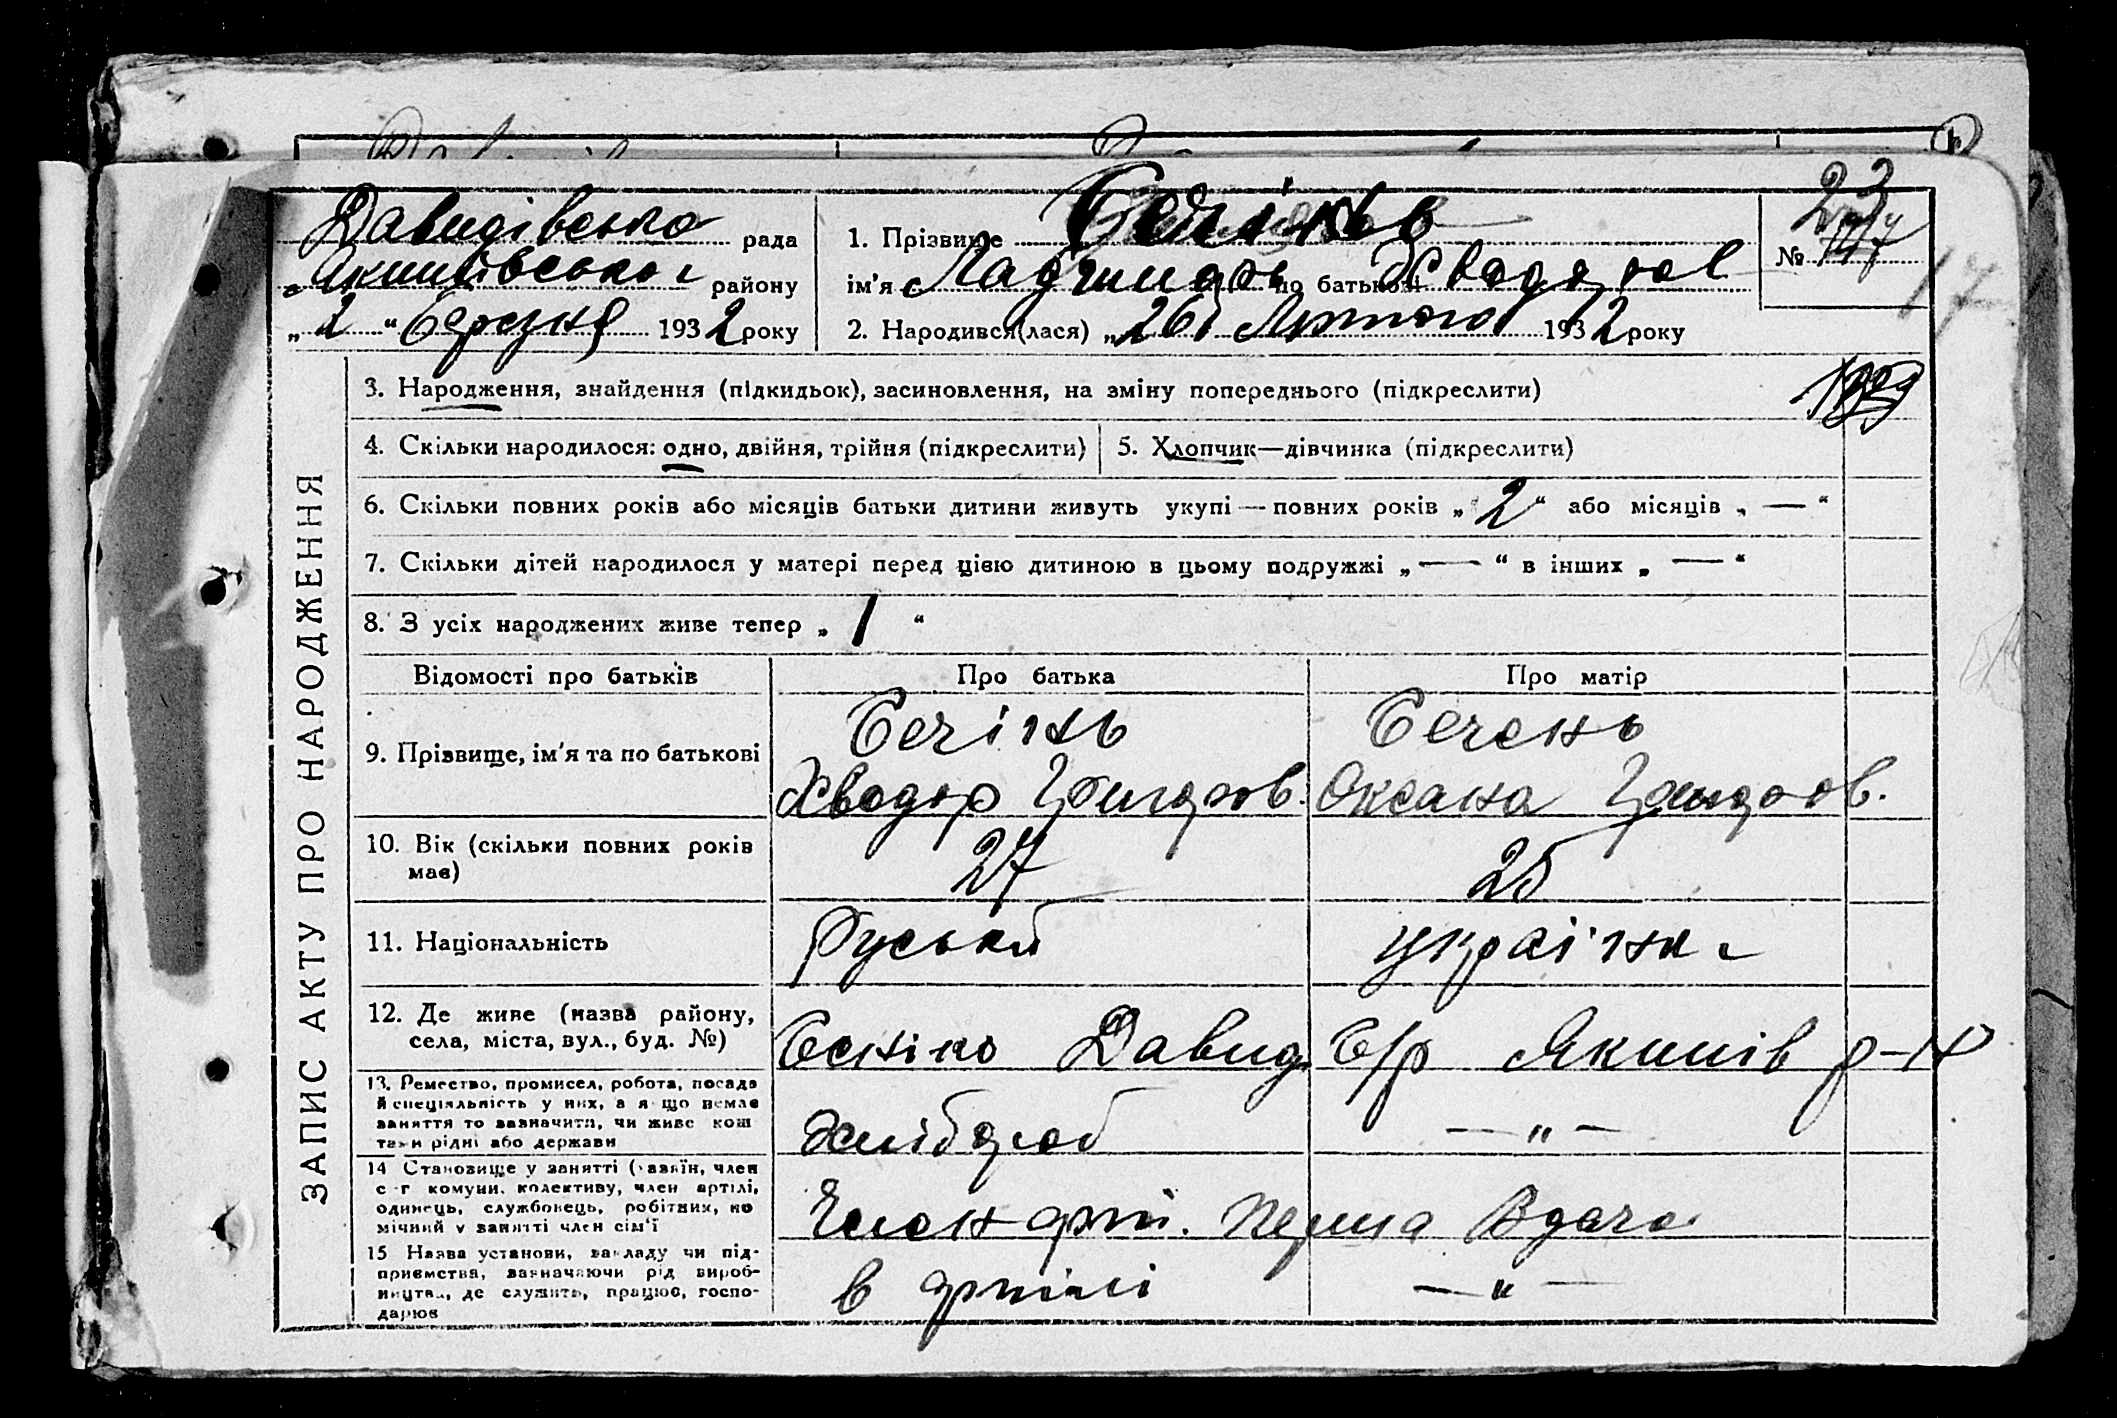 Давидівська рада
Якимівського району
„2“ Березня 1932 року
1. Прізвище Бечінь
ім'я по батькові
2. Народився(лася) „26“ Лютого 1932 року
№ 23
17
ЗАПИС АКТУ ПРО НАРОДЖЕННЯ
3. Народження, знайдення (підкидьок), засиновлення, на зміну попереднього (підкреслити)
4. Скільки народилося: одно, двійня, трійня (підкреслити)
5. Хлопчик—дівчинка (підкреслити)
6. Скільки повних років або місяців батьки дитини живуть укупі — повних років „2“ або місяців „—“
7. Скільки дітей народилося у матері перед цією дитиною в цьому подружжі „—“ в інших „—“
8. З усіх народжених живе тепер „1“
Відомості про батьків Про батька Про матір
9. Прізвище, ім'я та по батькові
Бечінь Бечень
Хводор Григоров. Оксана Григоров.
10. Вік (скільки повних років має) 27 25
11. Національність Руський українка
12. Де живе (назва району, села, міста, вул., буд. №)
Давид. С/р Якимів р-н
13. Ремество, промисел, робота, посада
й спеціяльність у них, а якщо немає
заняття то зазначити, чи живе кош
тами рідні або держави
хлібороб — „ —
14 Становище у занятті (хазяїн, член
с-г комуни, колективу, член артілі,
одинець, службовець, робітник, по
мічний у занятті член сім'ї
Член арт.
15 Назва установи, закладу чи під-
приємства, зазначаючи рід вироб-
ництва, де служить, працює, госпо-
дарює
в артілі — „ —